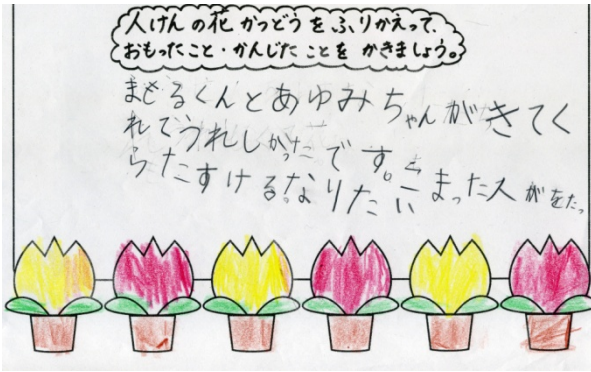 人けんの花かつどうをふりかえって、
おもったこと・かんじたことをかきましょう。
まもるくんとあゆみちゃんがきてく
れてうれしかったです。
らたすける。なりたい まった人が